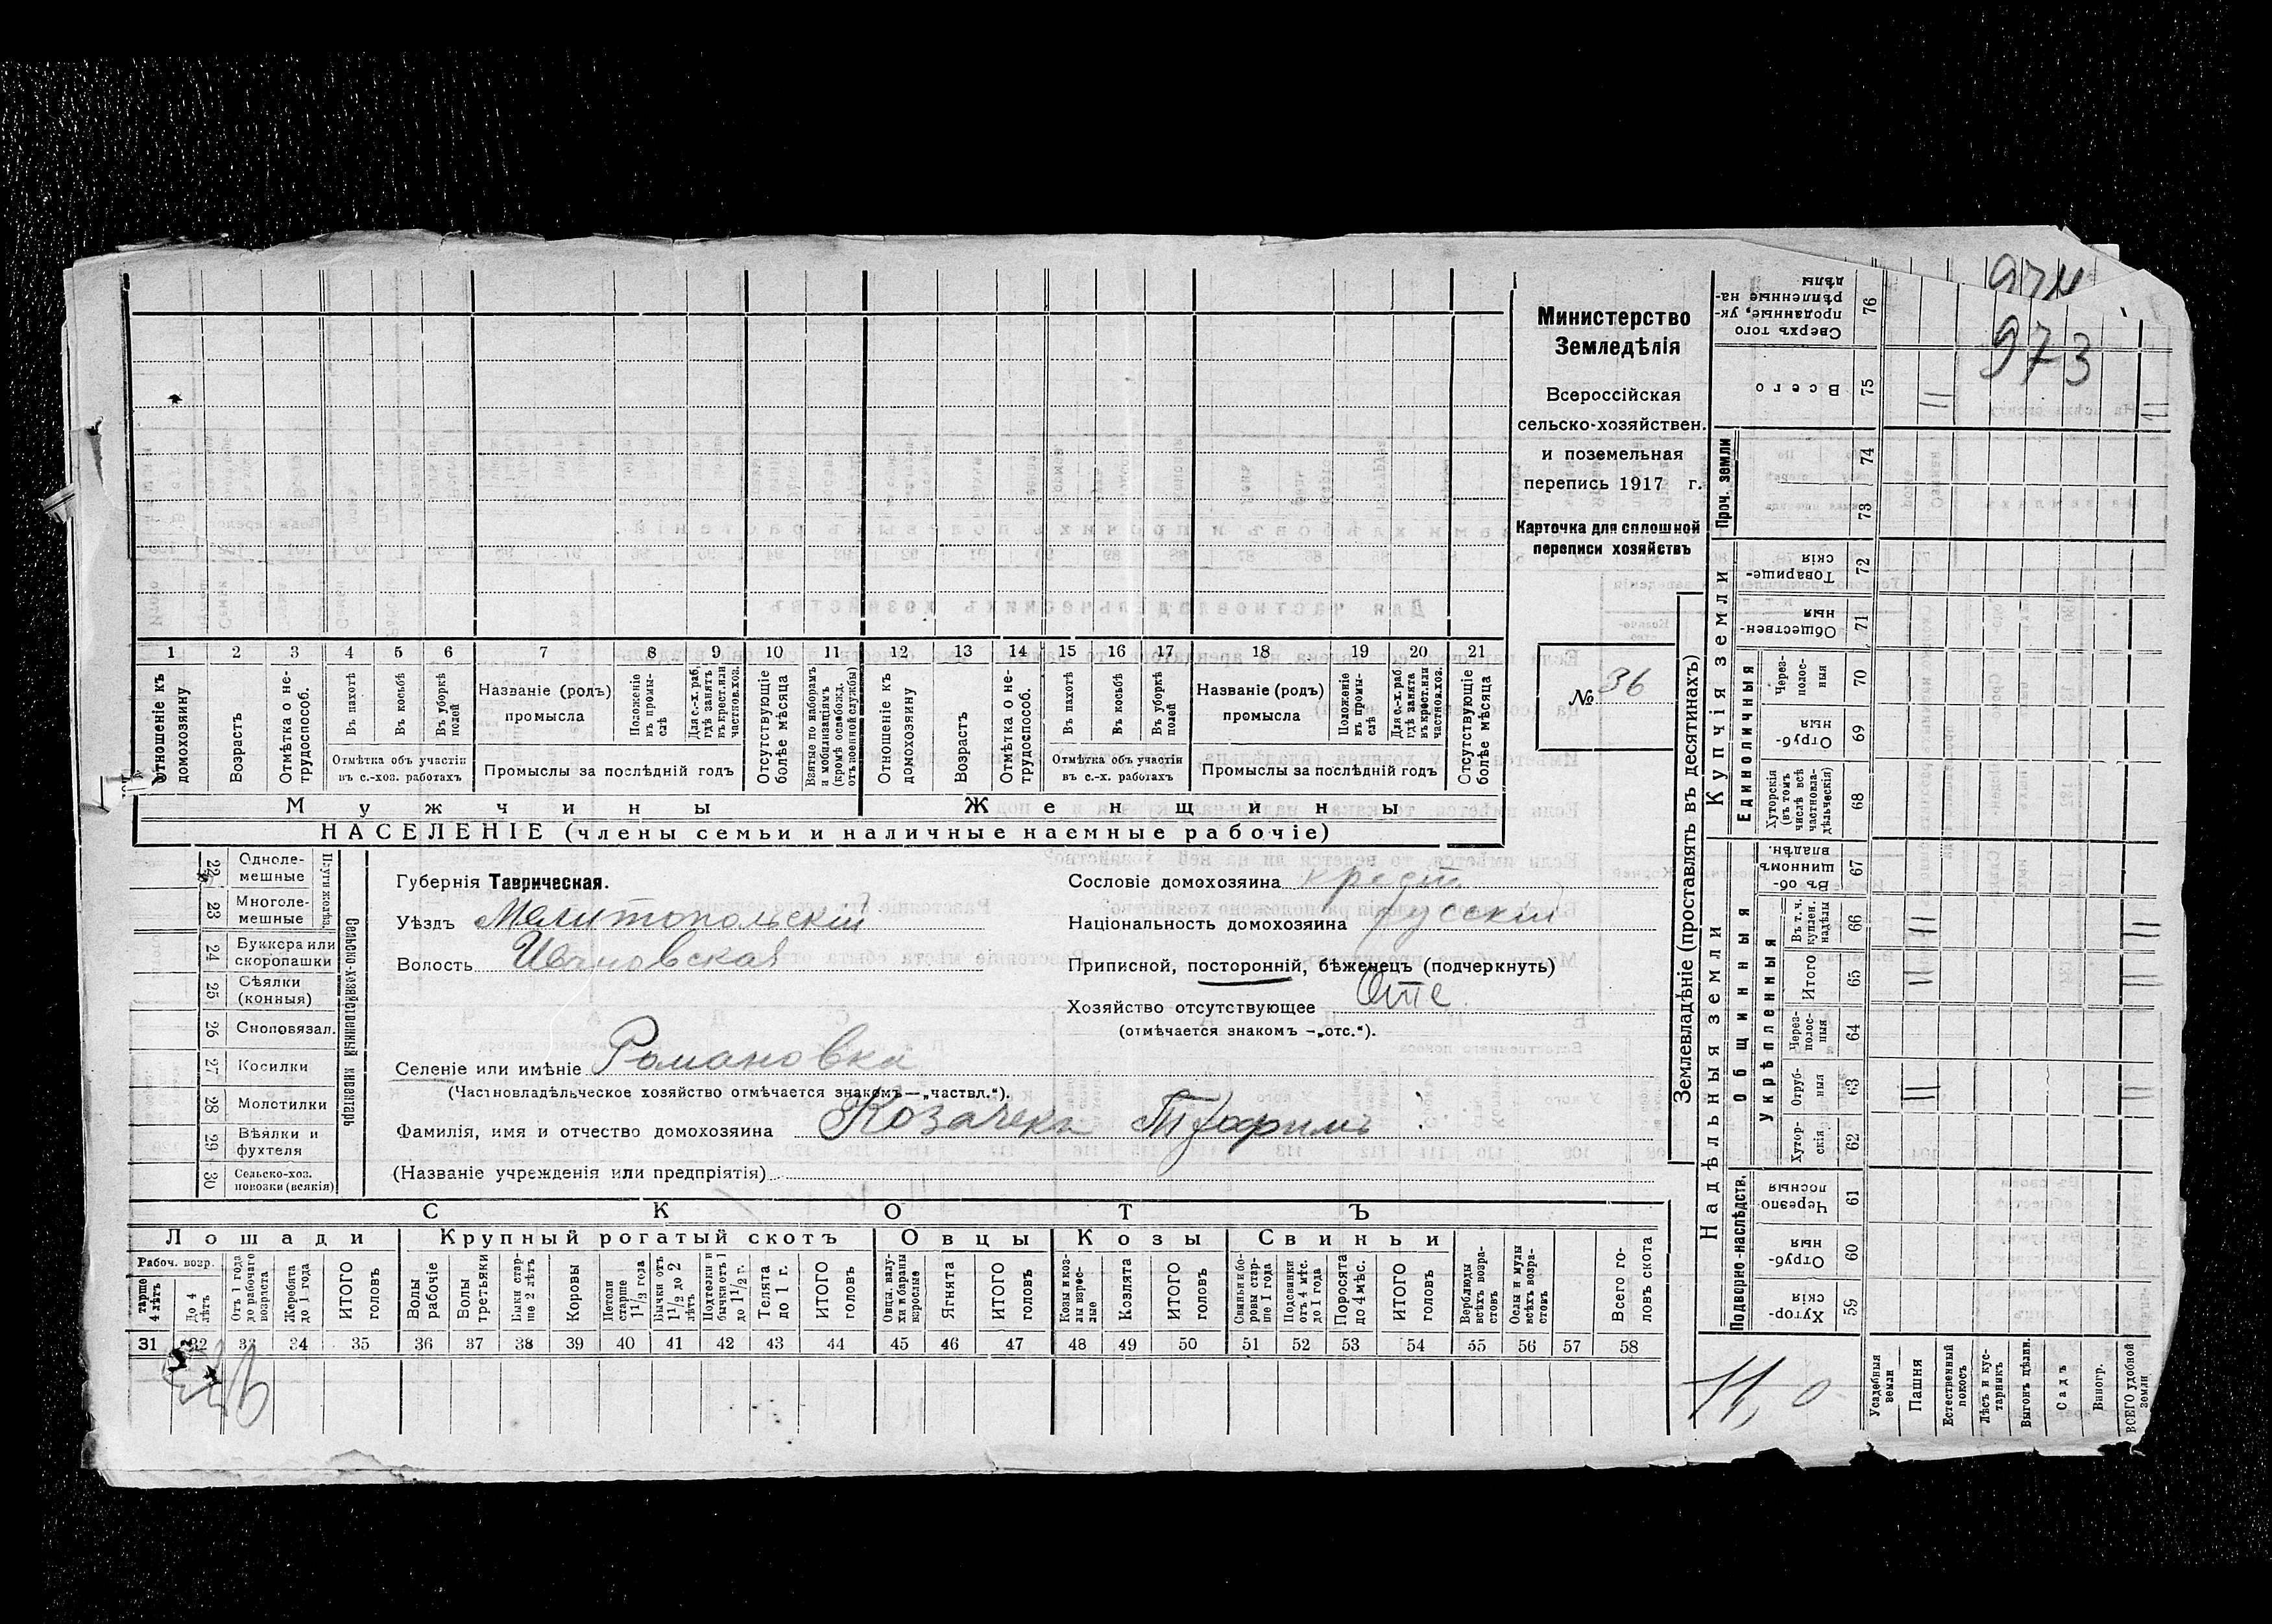 974
973
Министерство
Земледѣлія
Всероссійская
сельско-хозяйствен.
и поземельная
перепись 1917 г.
Карточка для сплошной
переписи хозяйствъ
№ 36
1 2 3 4 5 6 7 8 9 10 11 12 13 14 15 16 17 18 19 20 21
Отношеніе къ домохозяину
Возрастъ
Отмѣтка о не-трудоспособ.
Въ пахотѣ
Въ косьбѣ
Въ уборкѣ полей
Отмѣтка объ участіи
въ с.-хоз. работахъ
Названіе (родъ)
промысла
Положеніе въ промы-слѣ
Для с.-х. раб. гдѣ занятъ въ крест. или частнов. хоз.
Промыслы за послѣдній годъ
Отсутствующіе болѣе мѣсяца
Взятые по наборамъ и мобилизаціямъ (кромѣ освобожд. отъ военной службы)
Отношеніе къ домохозяину
Возрастъ
Отмѣтка о не-трудоспособ.
Въ пахотѣ
Въ косьбѣ
Въ уборкѣ полей
Отмѣтка объ участіи
въ с.-х. работахъ
Названіе (родъ)
промысла
Положеніе въ промы-слѣ
Для с.-х. раб. гдѣ занята въ крест. или частнов. хоз.
Промыслы за послѣдній годъ
Отсутствующіе болѣе мѣсяца
Мужчины
Женщины
НАСЕЛЕНІЕ (члены семьи и наличные наемные рабочіе)
22 Одноле-мешные
23 Многоле-мешные
24 Буккера или скоропашки
25 Сѣялки (конныя)
26 Сноповязал.
27 Косилки
28 Молотилки
29 Вѣялки и фухтеля
30 Сельско-хоз. повозки (всякія)
Сельско-хозяйственный инвентарь
Губернія Таврическая.
Уѣздъ Мелитопольскій
Волость Ивановская
Селеніе или имѣніе Романовка
(Частновладѣльческое хозяйство отмѣчается знакомъ—„частвл.“).
Фамилія, имя и отчество домохозяина Козачекъ Трофимъ
(Названіе учрежденія или предпріятія)
Сословіе домохозяина крест
Національность домохозяина русскій
Приписной, посторонній, бѣженецъ (подчеркнуть)
Хозяйство отсутствующее Отс
(отмѣчается знакомъ —„отс.“).
СКОТЪ
Лошади
Крупный рогатый скотъ
Овцы
Козы
Свиньи
Рабоч. возр.
старше 4 лѣтъ
До 4 лѣтъ
Отъ 1 года до рабочаго возраста
Жеребята до 1 года
ИТОГО головъ
Волы рабочіе
Волы третьяки
Быки стар-ше 2 лѣтъ
Коровы
Нетели старше 1½ года
Бычки отъ 1½ до 2 лѣтъ
Подтелки и бычки отъ 1 до 1½ г.
Телята до 1 г.
ИТОГО головъ
Овцы, валу-хи и бараны взрослые
Ягнята
ИТОГО головъ
Козы и коз-лы взрос-лые
Козлята
ИТОГО головъ
Свиньи и бо-ровы стар-ше 1 года
Подсвинки отъ 4 мѣс. до 1 года
Поросята до 4 мѣс.
ИТОГО головъ
Верблюды всѣхъ возра-стовъ
Ослы и мулы всѣхъ возра-стовъ
Всего го-ловъ скота
31 32 33 34 35 36 37 38 39 40 41 42 43 44 45 46 47 48 49 50 51 52 53 54 55 56 57 58
Землевладѣніе (проставлять въ десятинахъ)
Сверхъ того проданные, ук-рѣпленные на-дѣлы 76
Всего 75
Проч. земли
74
73
Купчія земли
Товарище-скія 72
Обществен-ныя 71
Единоличныя
Через-полос-ныя 70
Отруб-ныя 69
Хуторскія (въ томъ числѣ всѣ частновла-дѣльческія) 68
Надѣльныя земли
Общинныя
Въ об-щинномъ владѣн. 67
Укрѣпленныя
Въ т. ч. куплен. надѣлы 66
Итого 65
Через-полос-ныя 64
Отруб-ныя 63
Хутор-скія 62
Подворно-наслѣдств.
Черезпо-лосныя 61
Отруб-ныя 60
Хутор-скія 59
Усадебныя земли
Пашня
Естественный покосъ
Лѣсъ и кус-тарникъ
Выгонъ цѣлин.
Садъ
Виногр.
ВСЕГО удобной земли
11 11
11 11
11 11
11 11